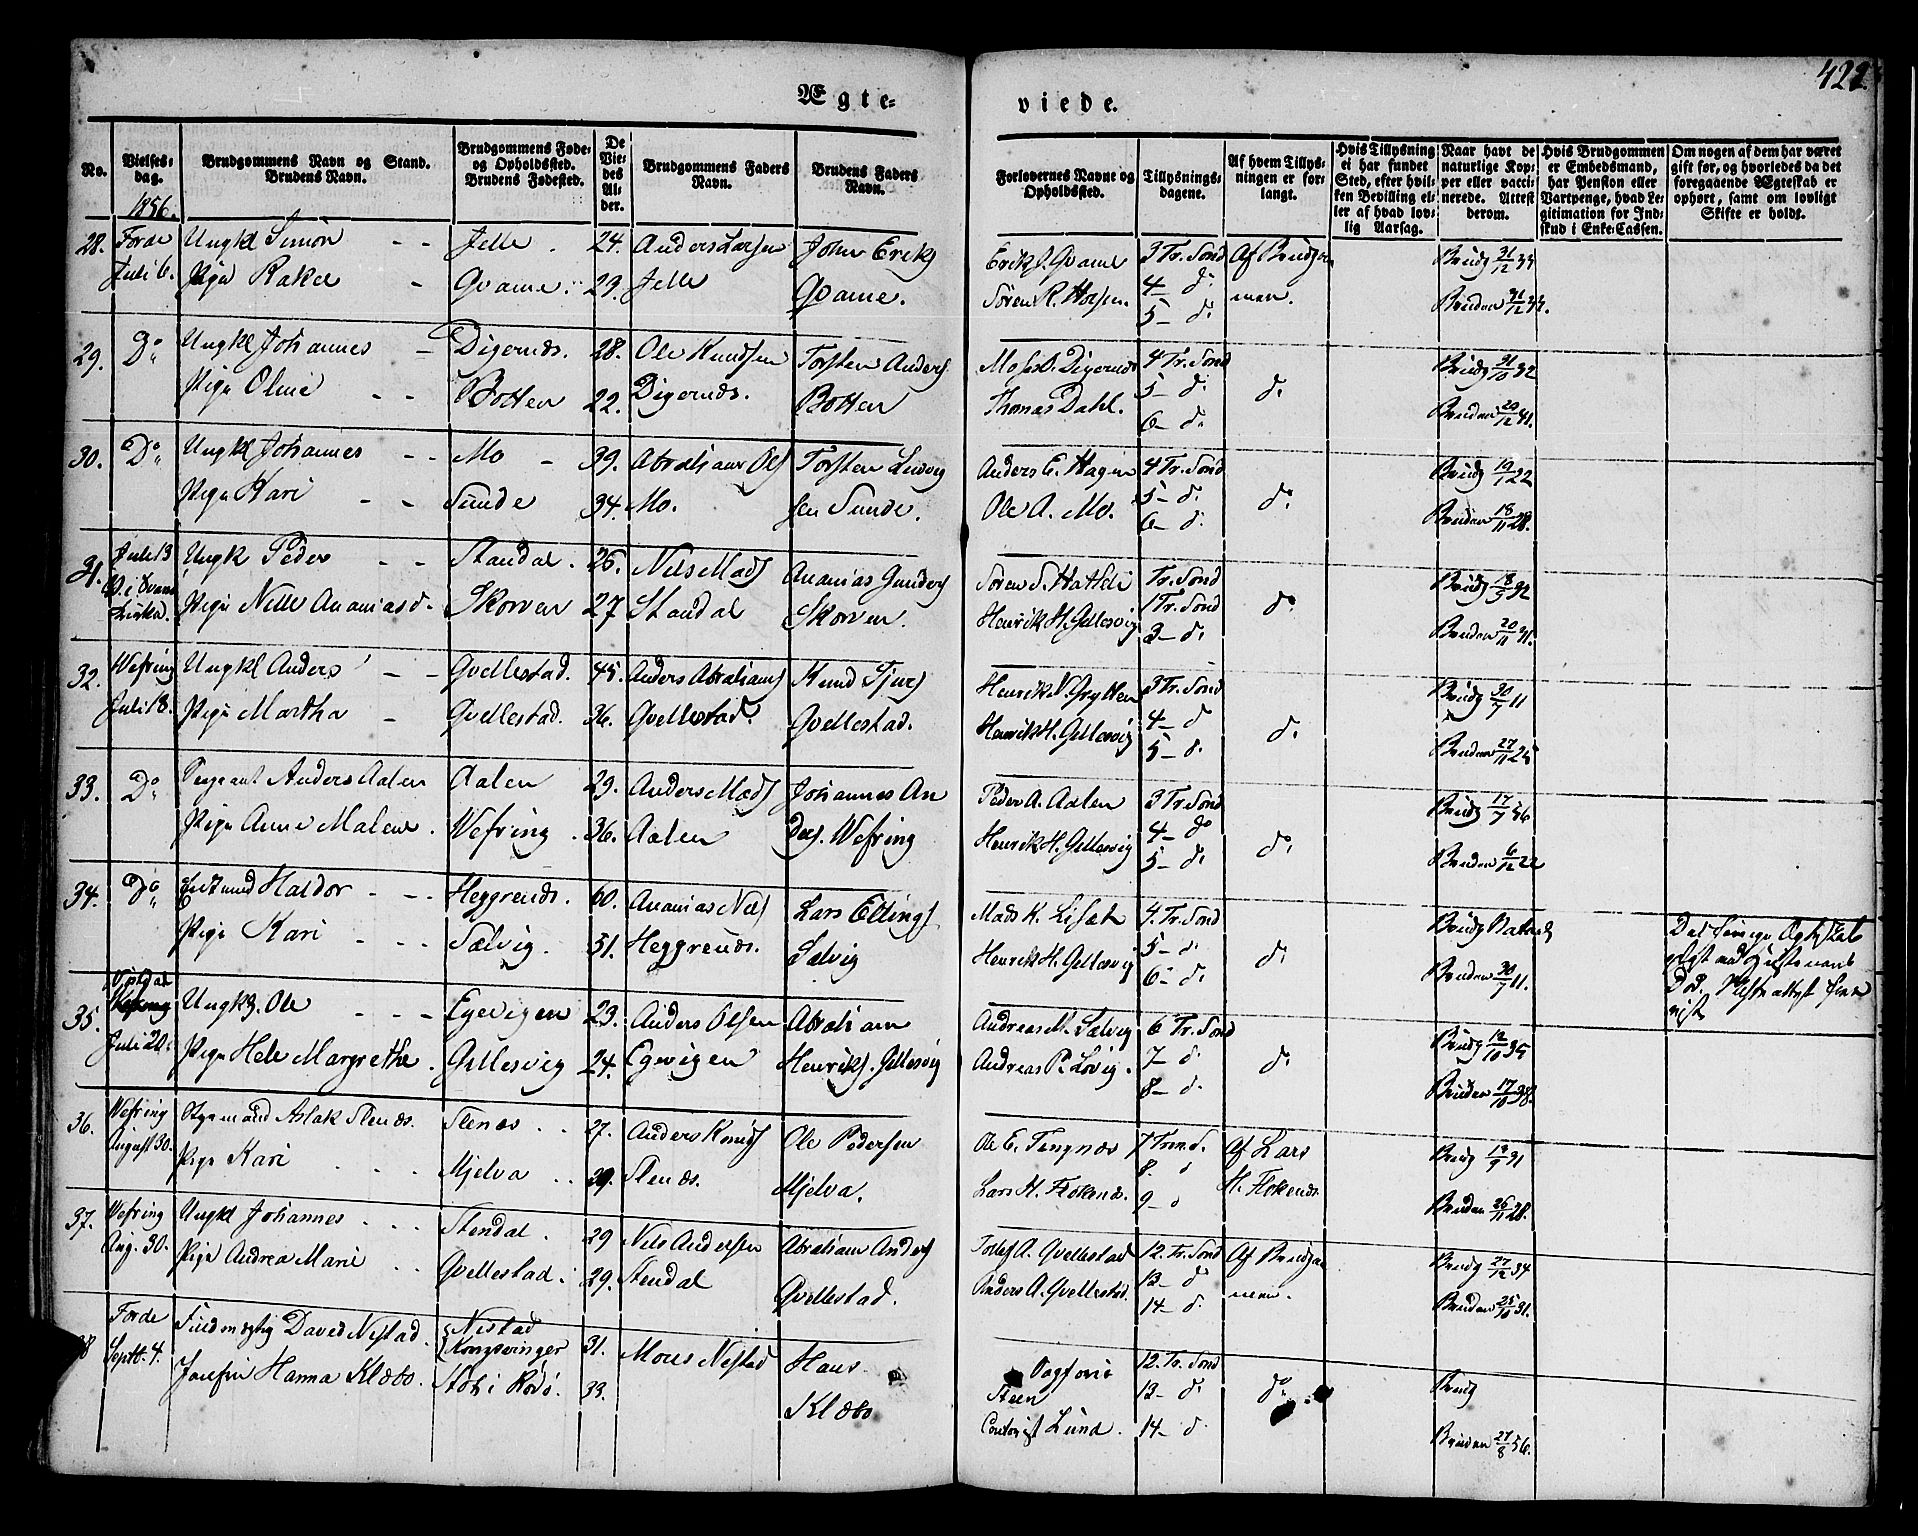 422
Ægte- viede.
No.
Vielses-
dag.
1856.
Brudgommens Navn og Stand.
Brudens Navn.
Brudgommens Føde-
og Opholdssted.
Brudens Fødested.
De
Vie-
des
Al-
der.
Brudgommens Faders
Navn.
Brudens Faders
Navn.
Forlovernes Navne og
Opholdssted.
Tillysnings-
dagene.
Af hvem Tillys-
ningen er for-
langt.
Hvis Tillysning
ei har fundet
Sted, efter hvil-
ken Bevilling el-
ler af hvad lov-
lig Aarsag.
Naar havt de
naturlige Kop-
per eller vacci-
nerede. Attest
derom.
Hvis Brudgommen
er Embedsmand,
har Pension eller
Vartpenge, hvad Le-
gitimation for Ind-
skud i Enke-Cassen.
Om nogen af dem har været
gift før, og hvorledes da det
foregaaende Ægteskab er
ophørt, samt om lovligt
Skifte er holdt.
28. Førde Ungkl Simon - - Jelle . 24. Anders Larsen John Eriks Erik J. Qvame 3 Tr. Sond Af Brudgom Brudg 31/12 33
Juli 6. Pige Rakel - Qvame 29. Jelle Qvame. Søren R. Horsen. 4 - do men. Bruden 31/12 32.
5 - do
29. Do Ungkl Johannes - Digernæs. 28. Ole Knudsen Torsten Anders Moses O. Digernæs 4 Tr. Sond Brudg 31/10 32
Pige Oline - - Botten 22. Digernæs. Botten Thomas Dahl. 5 - do do Bruden 20/12 41.
6 - do
30. Do Ungkl Johannes - - Mo - 39. Abraham Ols Torsten Ludvig Anders E. Hagen 4 Tr. Sond Brudg 19/1 22
Pige Kari - - Sunde 34. Mo. sen Sunde. Ole A. Mo. 5 - do do Bruden 18/11 28.
6 - do
31. Juli 13 Ungk Peder - - Standal . 26. Nils Mads Ananias Gunders Søren S. Hatleli Tr. Sond Brudg 18/5 32
Kirka. Pige Nille Ananiasd. Skorven 27 Standal Skorven. Henrik H. Gillesvig 1 Tr. Sond do Bruden 20/11 31.
3 - do
32. Wefring Ungkl Anders - - Qvellestad. 45. Anders Abrahams Knud Sjurs Henrik N. Grytten 3 Tr. Sond Brudg 30/7 11
Juli 18. Pige Martha - Qvellestad. 36. Qvellestad. Qvellestad. Henrik H. Gillesvig 4 - do do Bruden 27/11 25
5 - do
33. Do Sergeant Anders Aalen Aalen 29. Anders Mads Johannes An Peder A. Aalen 3 Tr. Sond Brudg 17/7 56
Pige Anne Malene. Wefring . 36. Aalen ders. Wefring Henrik H. Gillesvig 4 - do do Bruden 6/12 22
5 - do
34. Do Enkemand Haldor - - - Heggenæs. 60. Ananias Nils Lars Ellings Mads K. Lisæt 4. Tr. Sond Brudg Naturlig
Pige Kari - - - Sælvig. 51. Heggenæs. Sælvig Henrik H. Gillesvig 5 - do do Bruden 30/7 11.
6 - do
35. Ungk. Ole - - - Egevigen 23. Anders Olsen Abraham Andreas M. Sælvig 6 Tr. Sond Brudg 12/10 35
Juli 20. Pige Hele Margrethe. Gillesvig 24. Egevigen Henriks. Gillesvig Andreas P. Løvig. 7 - do do Bruden 17/10 38.
8 - do
36. Wefring Aslak Stenæs. Stenæs . . 27. Anders Knuds Ole Pedersen Ole E. Tingnæs 7 Trin. S. Af Lars Brudg 19/9 31
August 30. Pige Kari . . . Mjelva . . 29. Stenæs. Mjelva. Lars H. Flokenæs. 8. do H. Flokenæs. Bruden 26/11 28.
9 - do
37. Wefring Ungkl Johannes . . . Stendal . 29 Nils Andersen Abraham Anders Tollef A. Qvellestad 12. Tr. Sond Af Brudgom Brudg 27/12 34
Aug. 30. Pige Andrea Marie . . Qvellestad . 29. Stendal Qvellestad. Anders A. Qvellestad. 13 - do men. Bruden 25/10 31.
14 - do
38 Førde Fuldmægtig David Nestad. Nestad Kongsvinger 31. Mons Nestad Hans Fogforv. 12. Tr. Sond Brudg
Septb. 4. Josefin Hanna Klæbo. Støt i Rødø. 33. Klæbo Steen 13 - do do Bruden 27/8 56.
Contorist Lund. 14 - do